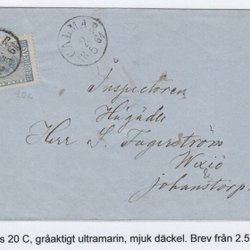 CALMAR
Inspectoren
Högädle
Herr S. Fagerström
Wexiö
Johanstorp
20 C, gråaktigt ultramarin, mjuk däckel. Brev från 2.5